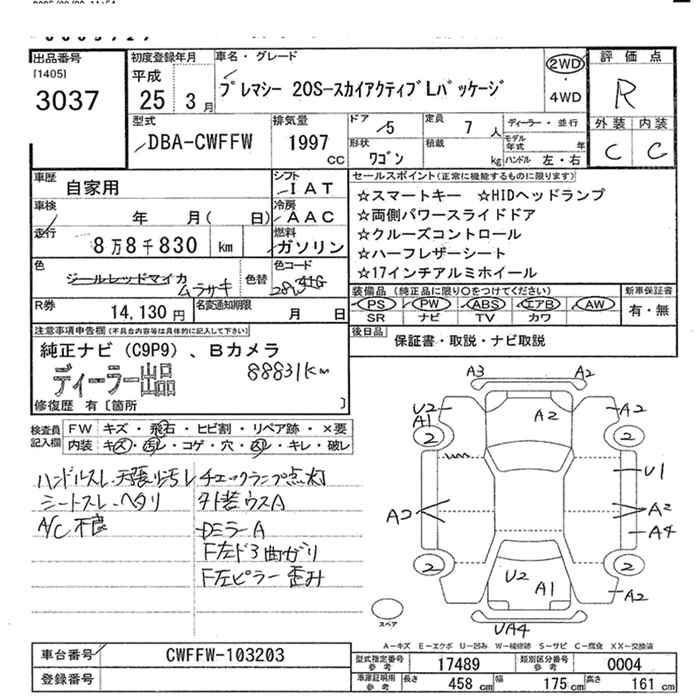 出品番号
[1405]
3037
初度登録年月
平成
25年 3月
車名・グレード
プレマシー 20S-スカイアクティブLパッケージ
2WD
4WD
評価点
R
外装 内装
C C
型式
DBA-CWFFW
排気量
1997
cc
ドア
5
形状
ワゴン
定員
7人
積載
kg
ディーラー・並行
モデル年式 年
ハンドル 左・右
車歴
自家用
シフト
IAT
車検
年 月( 日)
冷房
AAC
走行
8万8千830 km
燃料
ガソリン
色
ジールレッドマイカ
ムラサキ
色替
色コード
R券
14,130円
名変通知期限
月 日
セールスポイント(正常に機能するものに限ります)
☆スマートキー ☆HIDヘッドランプ
☆両側パワースライドドア
☆クルーズコントロール
☆ハーフレザーシート
☆17インチアルミホイール
装備品(純正品に限り○をつけてください)
PS PW ABS エアB AW
SR ナビ TV カワ
新車保証書
有・無
後日品
保証書・取説・ナビ取説
注意事項申告欄(不具合内容等は具体的に記入して下さい)
純正ナビ(C9P9)、Bカメラ
ディーラー出品
88831km
修復歴 有[箇所 ]
検査員記入欄
FW キズ・飛石・ヒビ割・リペア跡・×要
内装 キズ・汚レ・コゲ・穴・凹レ・キレ・破レ
ハンドルスレ、天張リ汚レ
シートスレ・ヘタリ
A/C不良
チェックランプ点灯
外装ウスA
DミラーA
F左ドヨ曲ガリ
F左ピラー歪み
A3 A2
U2
A1
A2
A2
2 2
U1
A2
A2
A4
2 2
U2
A1
A2
UA4
スペア
A-キズ E-エクボ U-凹み W-補修跡 S-サビ C-腐食 XX-交換済
車台番号
CWFFW-103203
登録番号
型式指定番号 参考
17489
類別区分番号 参考
0004
車庫証明用 参考
長さ 458 cm
幅 175 cm
高さ 161 cm